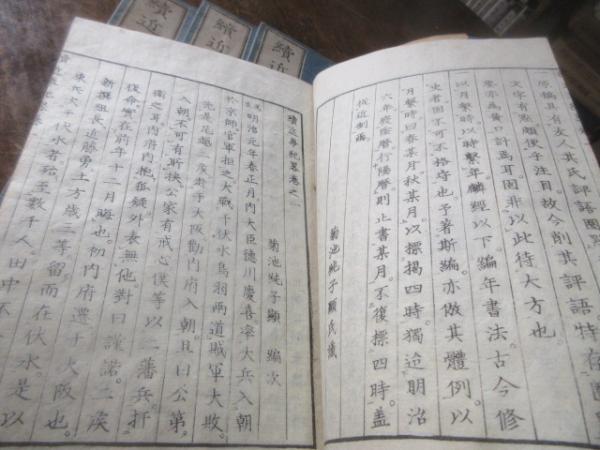 一原稿具有友人某氏評語圈點
文字有點頗便于注目故今削其評語特存圈點
要亦為黃口計焉耳固非以此待大方也
以月繫時以時繫年麟經以下編年書法古今修
史者固不可不恪守也予著斯編亦倣其體例以
月繫時曰春某月秋某月以標揭四時獨迨明治
六年癸陰曆行陽曆則止書某月不復標四時蓋
從近制焉
菊池純子顯氏識
續近事紀畧卷之一
菊池純子顯編次
明治元年春正月內大臣德川慶喜率大兵入朝
於京師官軍拒之大戰于伏水鳥羽兩道賊軍大敗
先是尾越二侯走于大阪勸內府入朝且曰公第
入朝不可有斯挾公家有戒心僕等以一藩兵扞
衛之耳內府內抱狐疑外表無他對曰謹諾二侯
復命實在前年十二月晦也初內府遷于大阪也
新撰組長近藤勇土方歲三等留而在伏水
東兵次于伏水者殆至數千人田中不
是以
續近
續近
續近